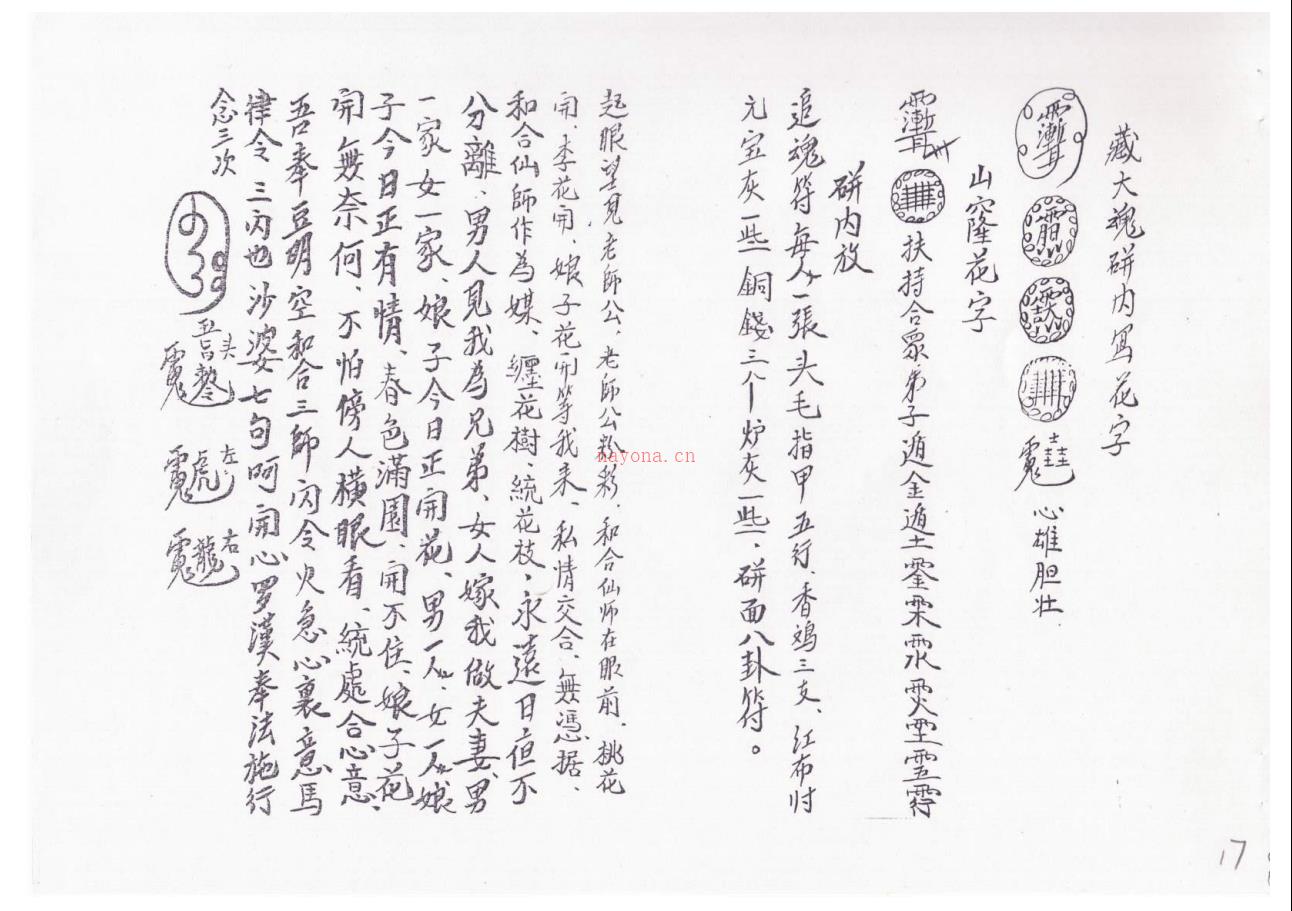 藏大魂砰内写花字
心雄胆壮
山窿花字
扶持合眾弟子遁金遁土
砰内放
追魂符每人一張头毛指甲五行、香鸡三支、红布对
元宝灰一些銅錢三个炉灰一些、砰面八卦符。
起眼望見老師公、老師公教、和合仙师在眼前、桃花
開、李花開、娘子花開等我来、私情交合、無憑据、
和合仙師作為媒、纏花樹、統花枝、永遠日夜不
分離、男人見我為兄弟、女人嫁我做夫妻、男
一家女一家、娘子今日正開花、男一人、女一人、娘
子今日正有情、春色滿園、開不住、娘子花
開無奈何、不怕傍人橫眼看、統處合心意、
吾奉豆明空和合三師闪令火急心裏意馬
律令 三闪也沙婆七句呵開心罗漢奉法施行
念三次
头
左
右
nayona.cn
17